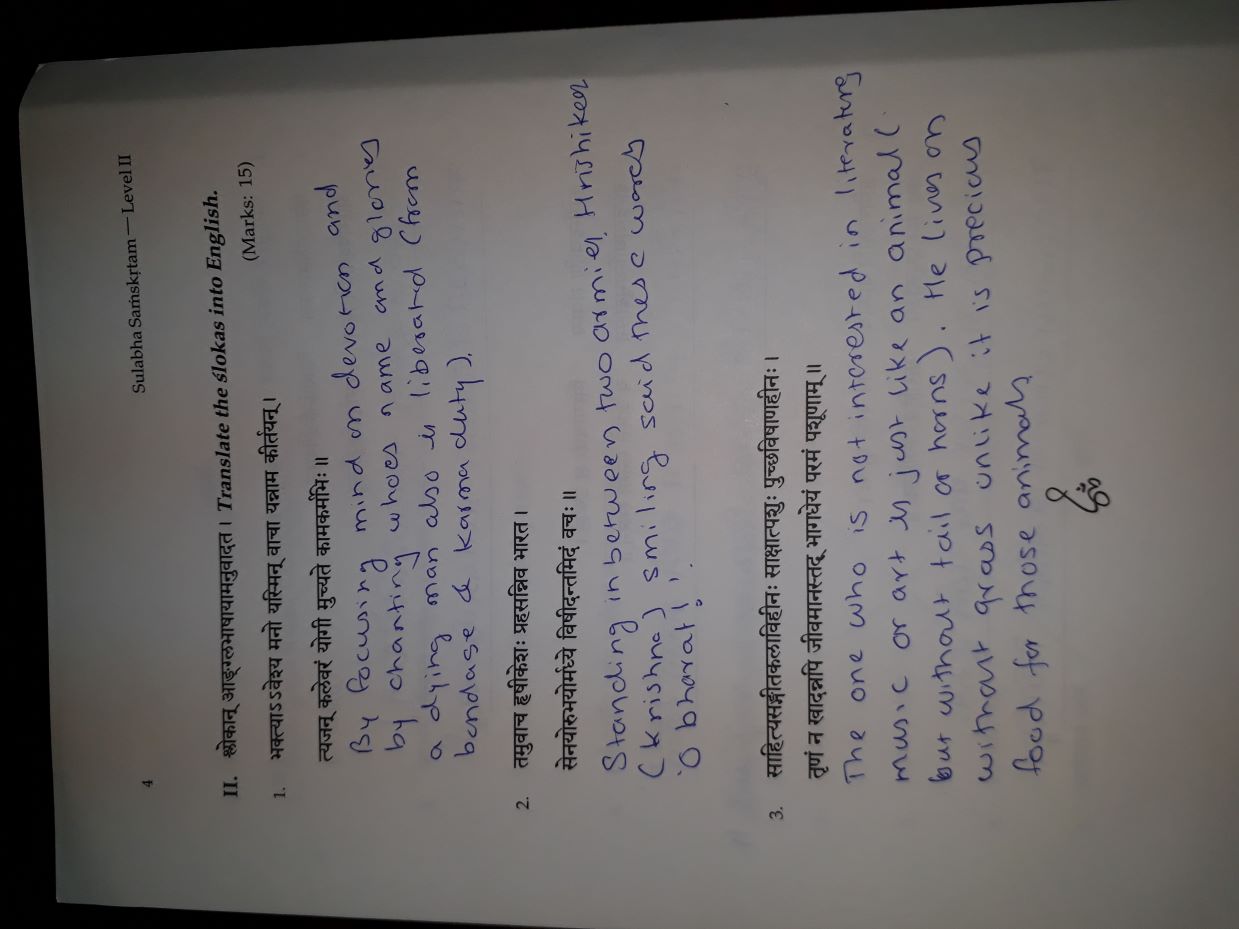 4
Sulabha Saṁskṛtam — Level II
II. श्लोकान् आङ्ग्लभाषायामनुवादत । Translate the ślokas into English.
(Marks: 15)
1. भक्त्याऽऽवेश्य मनो यस्मिन् वाचा यन्नाम कीर्तयन् ।
त्यजन् कलेवरं योगी मुच्यते कामकर्मभिः ॥
By focusing mind on devotion and
by chanting whoes name and glories
a dying man also is liberated (from
bondage & karma duty).
2. तमुवाच हृषीकेशः प्रहसन्निव भारत ।
सेनयोरुभयोर्मध्ये विषीदन्तमिदं वचः ॥
Standing in between two armies, Hrishikes
(Krishna) smiling said these words
'O bharat! '.
3. साहित्यसङ्गीतकलाविहीनः साक्षात्पशुः पुच्छविषाणहीनः ।
तृणं न खादन्नपि जीवमानस्तद् भागधेयं परमं पशूनाम् ॥
The one who is not interested in literature,
music or art is just like an animal (
but without tail or horns). He lives on
without grass unlike it is precious
food for those animals.
ॐ